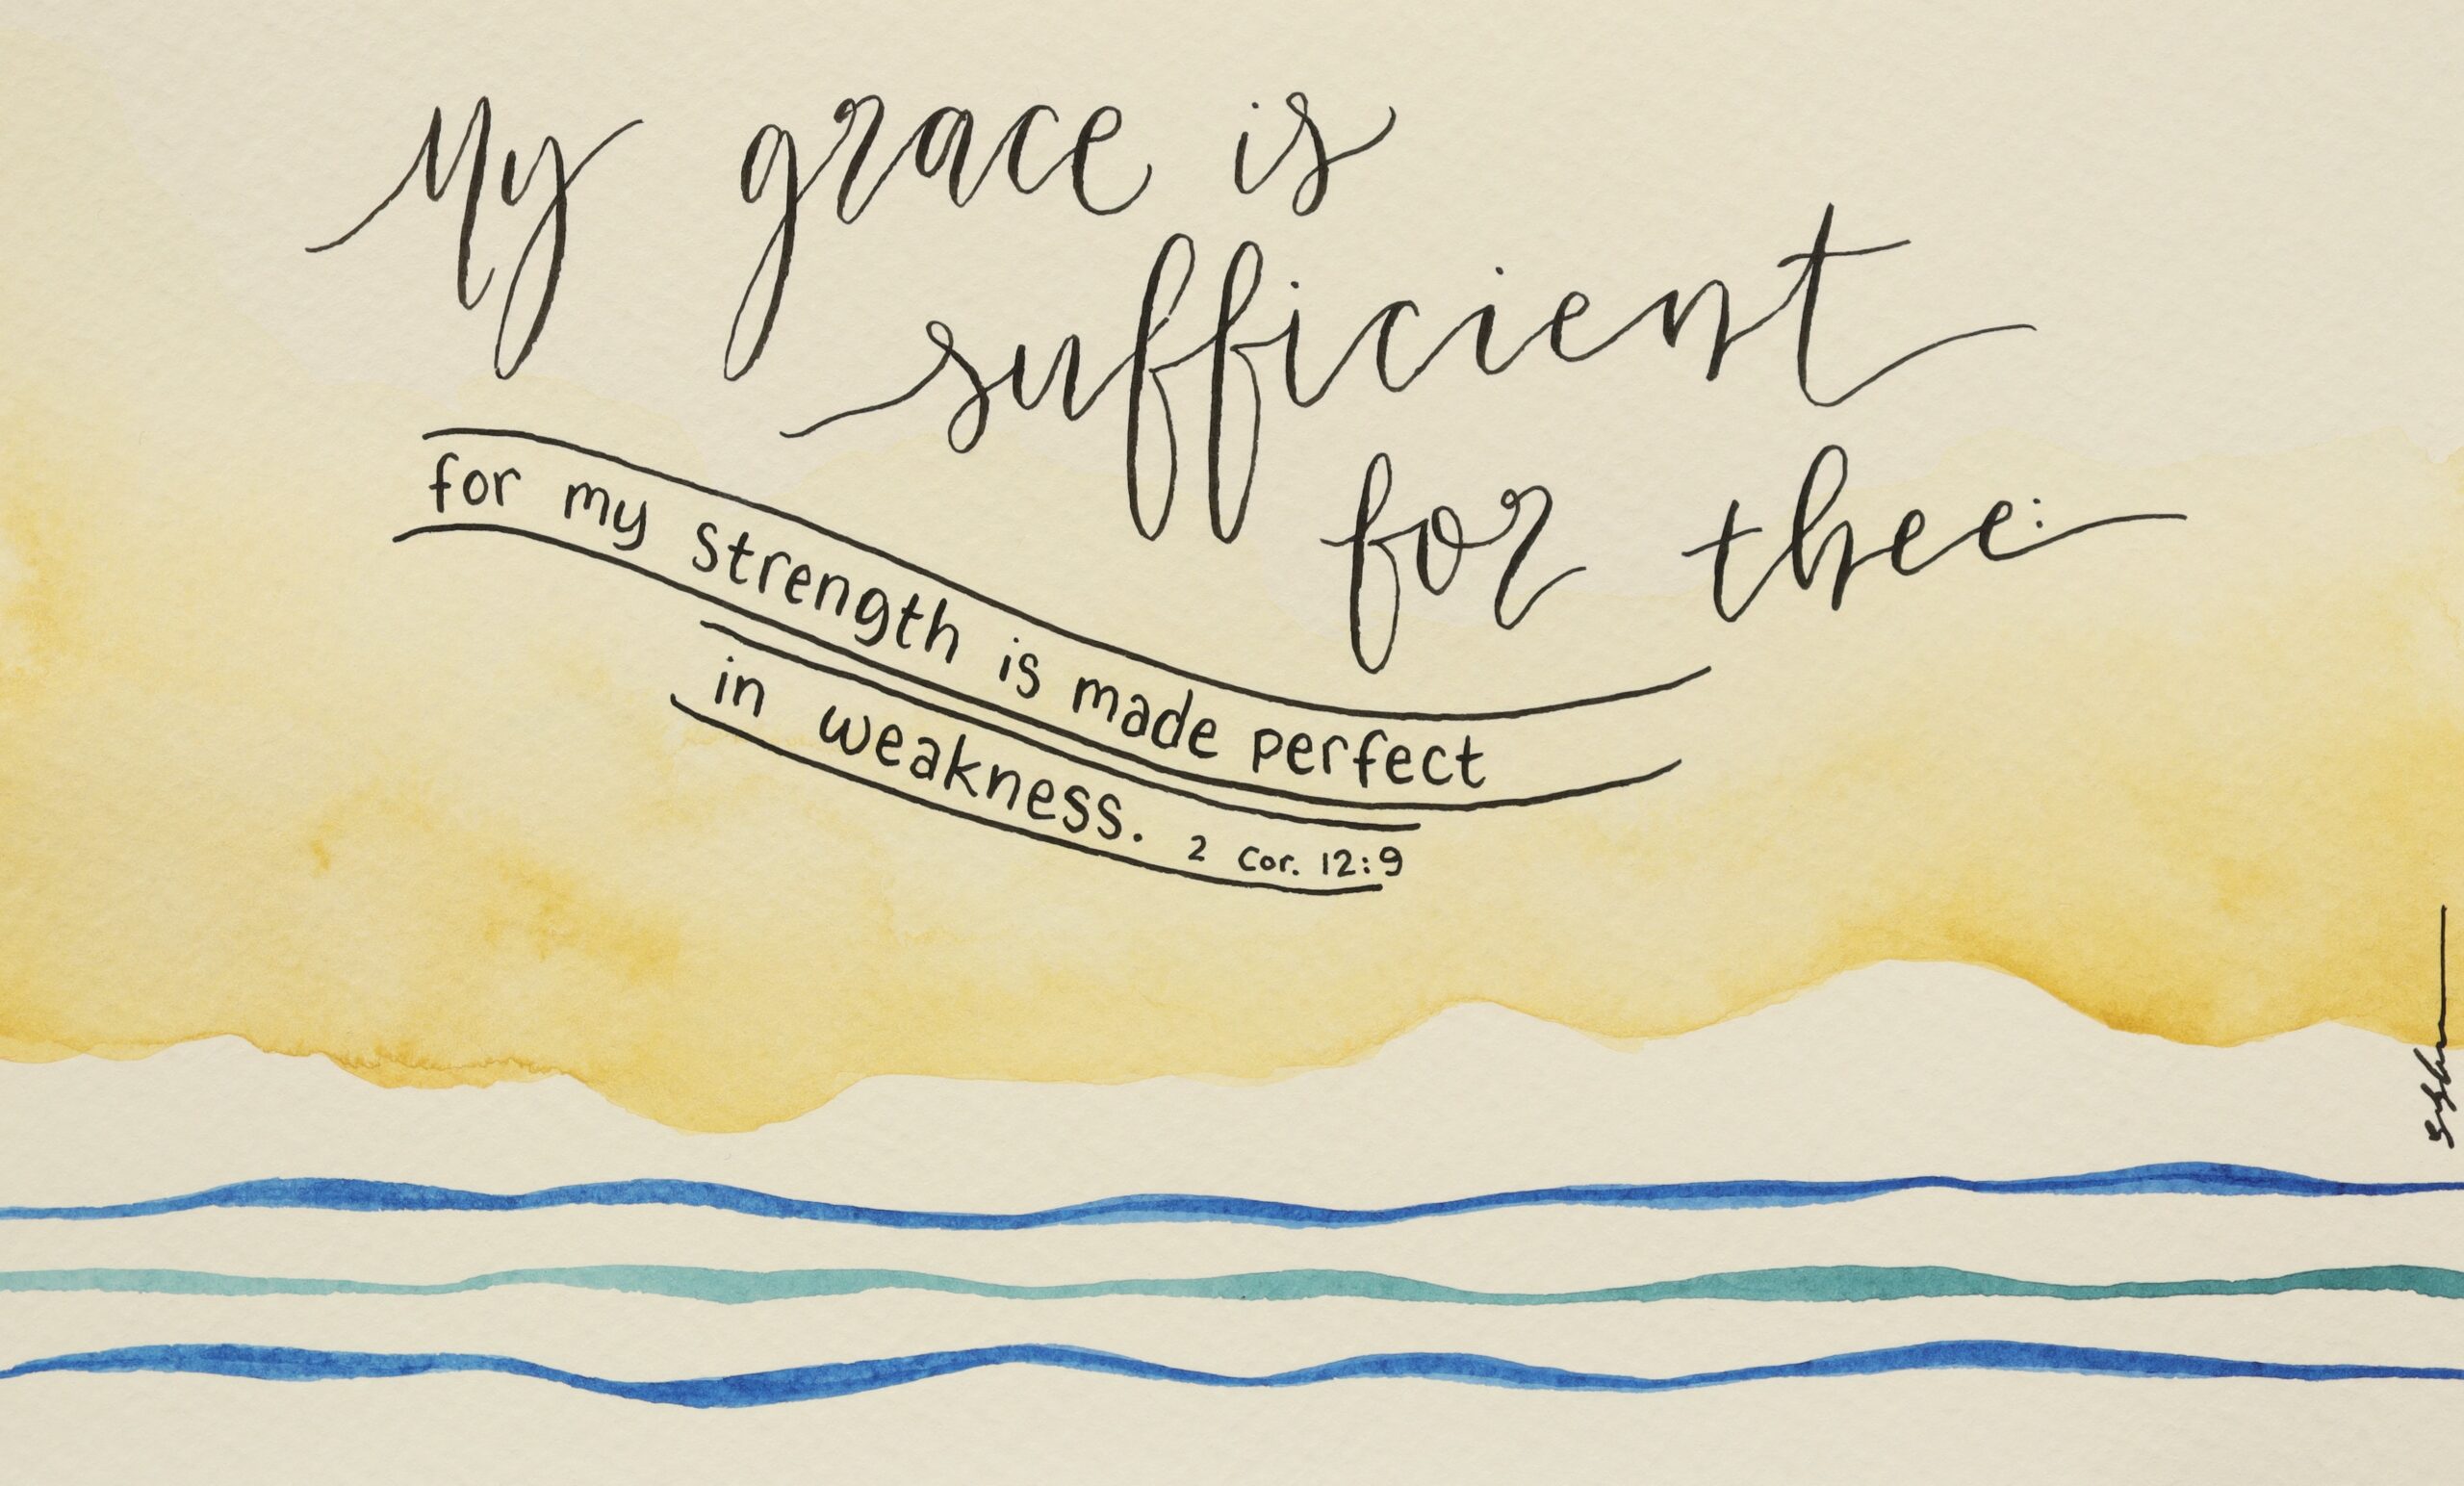 My grace is
sufficient
for thee:
for my strength is made perfect
in weakness. 2 Cor. 12:9